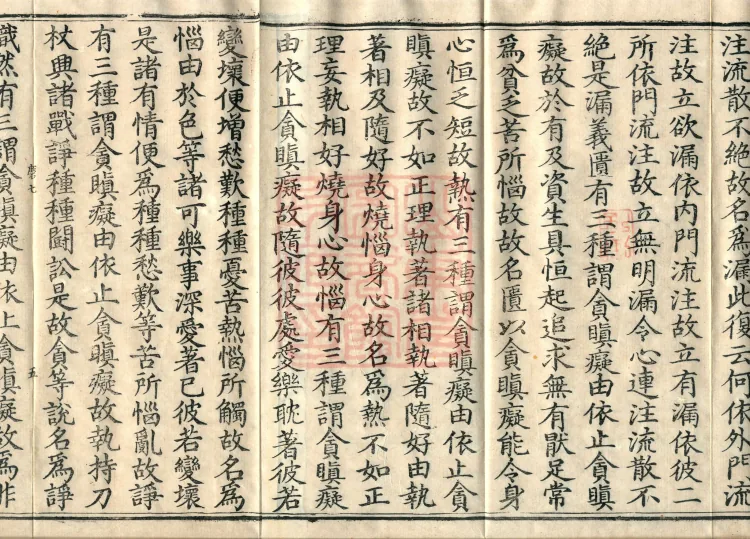 注流散不絶故名爲漏此復云何依外門流
注故立欲漏依内門流注故立有漏依彼二
所依門流注故立無明漏令心連注流散不
絶是漏義匱有三種謂貪瞋癡由依止貪瞋
癡故於有及資生具恒起追求無有猒足常
爲貧乏苦所惱故故名匱以貪瞋癡能令身
心恒乏短故熱有三種謂貪瞋癡由依止貪
瞋癡故不如正理執著諸相執著隨好由執
著相及隨好故燒惱身心故名爲熱不如正
理妄執相好燒身心故惱有三種謂貪瞋癡
由依止貪瞋癡故隨彼彼處愛樂耽著彼若
變壞便增愁歎種種憂苦熱惱所觸故名爲
惱由於色等諸可樂事深愛著已彼若變壞
是諸有情便爲種種愁歎等苦所惱亂故諍
有三種謂貪瞋癡由依止貪瞋癡故執持刀
杖興諸戰諍種種鬪訟是故貪等說名爲諍
熾然有三謂貪瞋癡由依止貪瞋癡故爲非